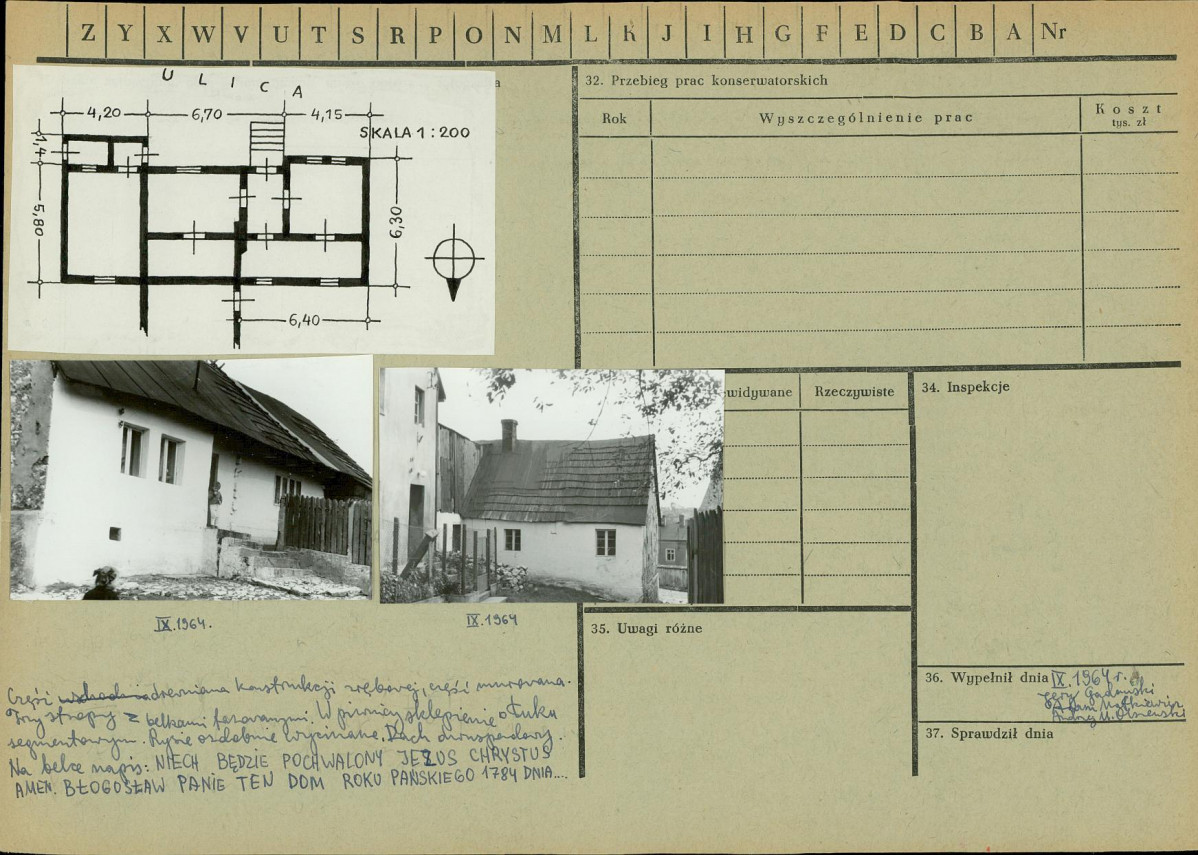 Z Y X W V U T S R P O N M L K J I H G F E D C B A Nr
ULICA
4,20 6,70 4,15
SKALA 1:200
1,4
5,80
6,30
6,40
a
32. Przebieg prac konserwatorskich
Rok Wyszczególnienie prac Koszt tys. zł
widywane Rzeczywiste
34. Inspekcje
IX.1964.
IX.1964
35. Uwagi różne
36. Wypełnił dnia IX.1964 r.
Jerzy Gadomski
Adam Małkiewicz
Andrzej M. Olszewski
37. Sprawdził dnia
Część wschodnia drewniana konstrukcji zrębowej, część murowana.
stropy z belkami fazowanymi. W piwnicy sklepienie o łuku
segmentowym. Rysie ozdobnie wycinane. Dach dwuspadowy.
Na belce napis: NIECH BĘDZIE POCHWALONY JEZUS CHRYSTUS
AMEN. BŁOGOSŁAW PANIE TEN DOM ROKU PAŃSKIEGO 1784 DNIA...